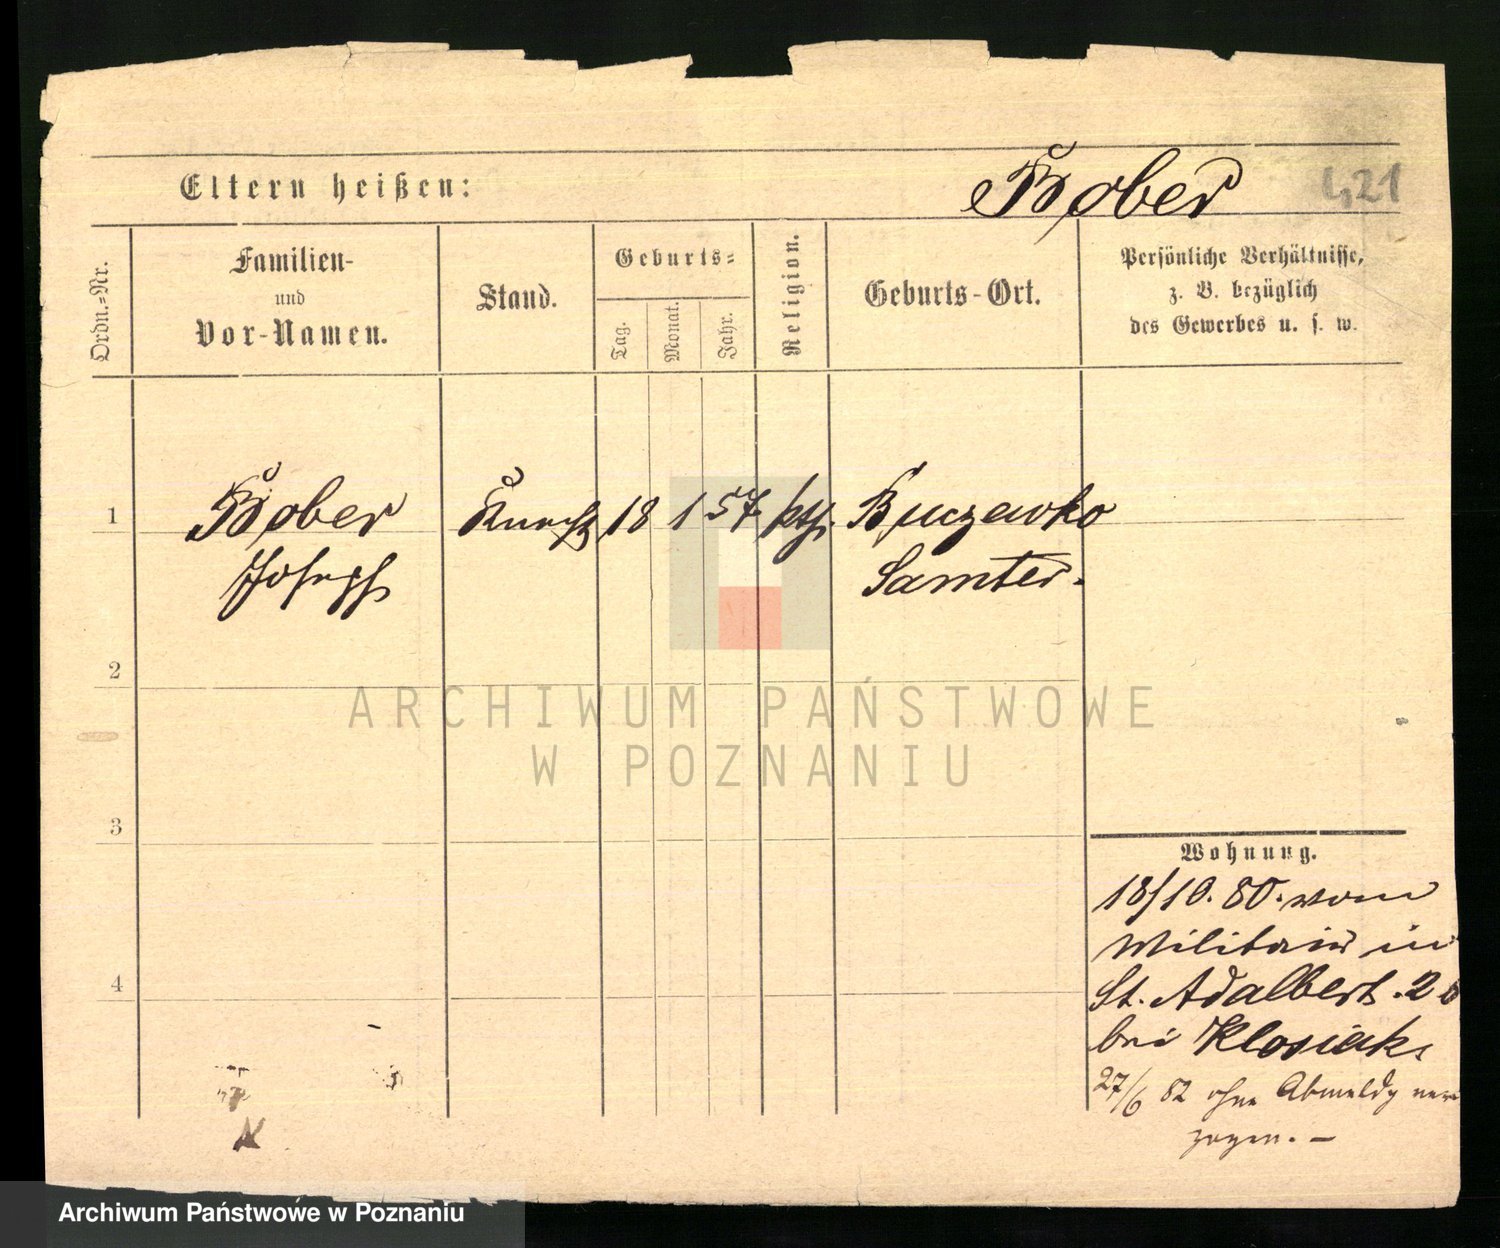 Bober
421
Eltern heißen:
Ordn.-Nr.
Familien-
und
Vor-Namen.
Stand.
Geburts-
Tag.
Monat.
Jahr.
Religion.
Geburts-Ort.
Persönliche Verhältnisse,
z. B. bezüglich
des Gewerbes u. s. w.
1
Bober
Joseph
Knecht
18
1
57
kth.
Buczewko
Samter.
2
3
4
Wohnung.
18/10. 80. vom
Militair in
St. Adalbert. 2
bei Klosiak
27/6 82 ohne Abmeldg ver
zogen. –
ARCHIWUM PAŃSTWOWE
W POZNANIU
Archiwum Państwowe w Poznaniu